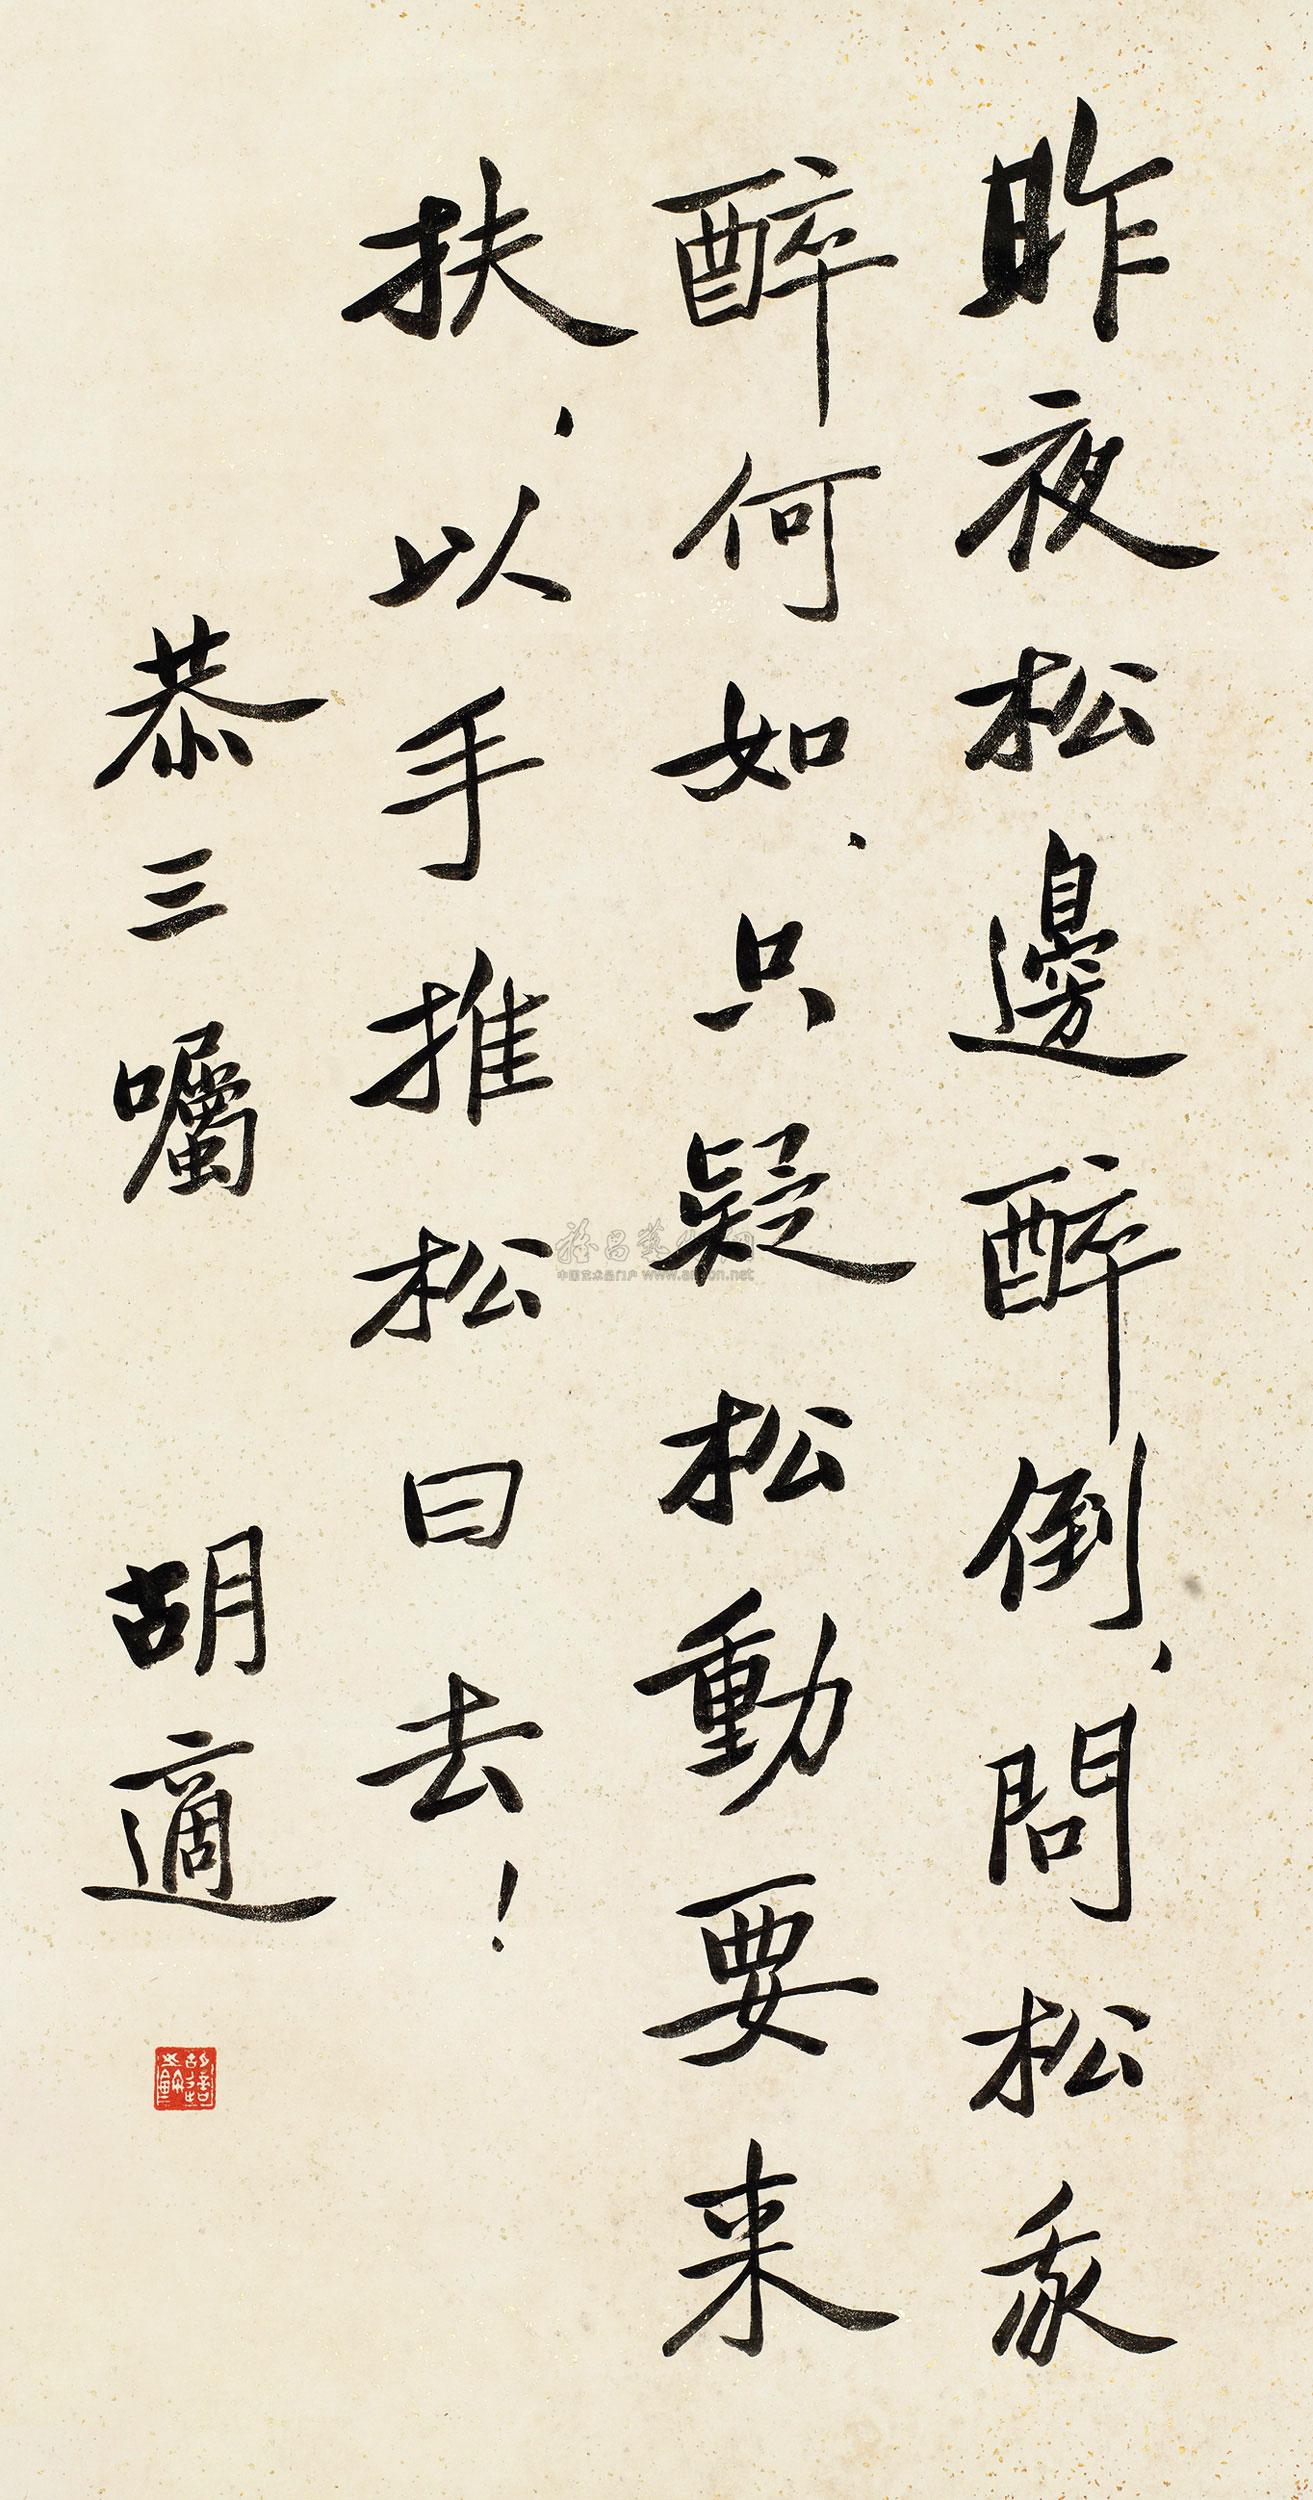 昨夜松邊醉倒、問松我
醉何如、只疑松動要来
扶、以手推松曰去！
恭三囑 胡適
中国艺术品门户